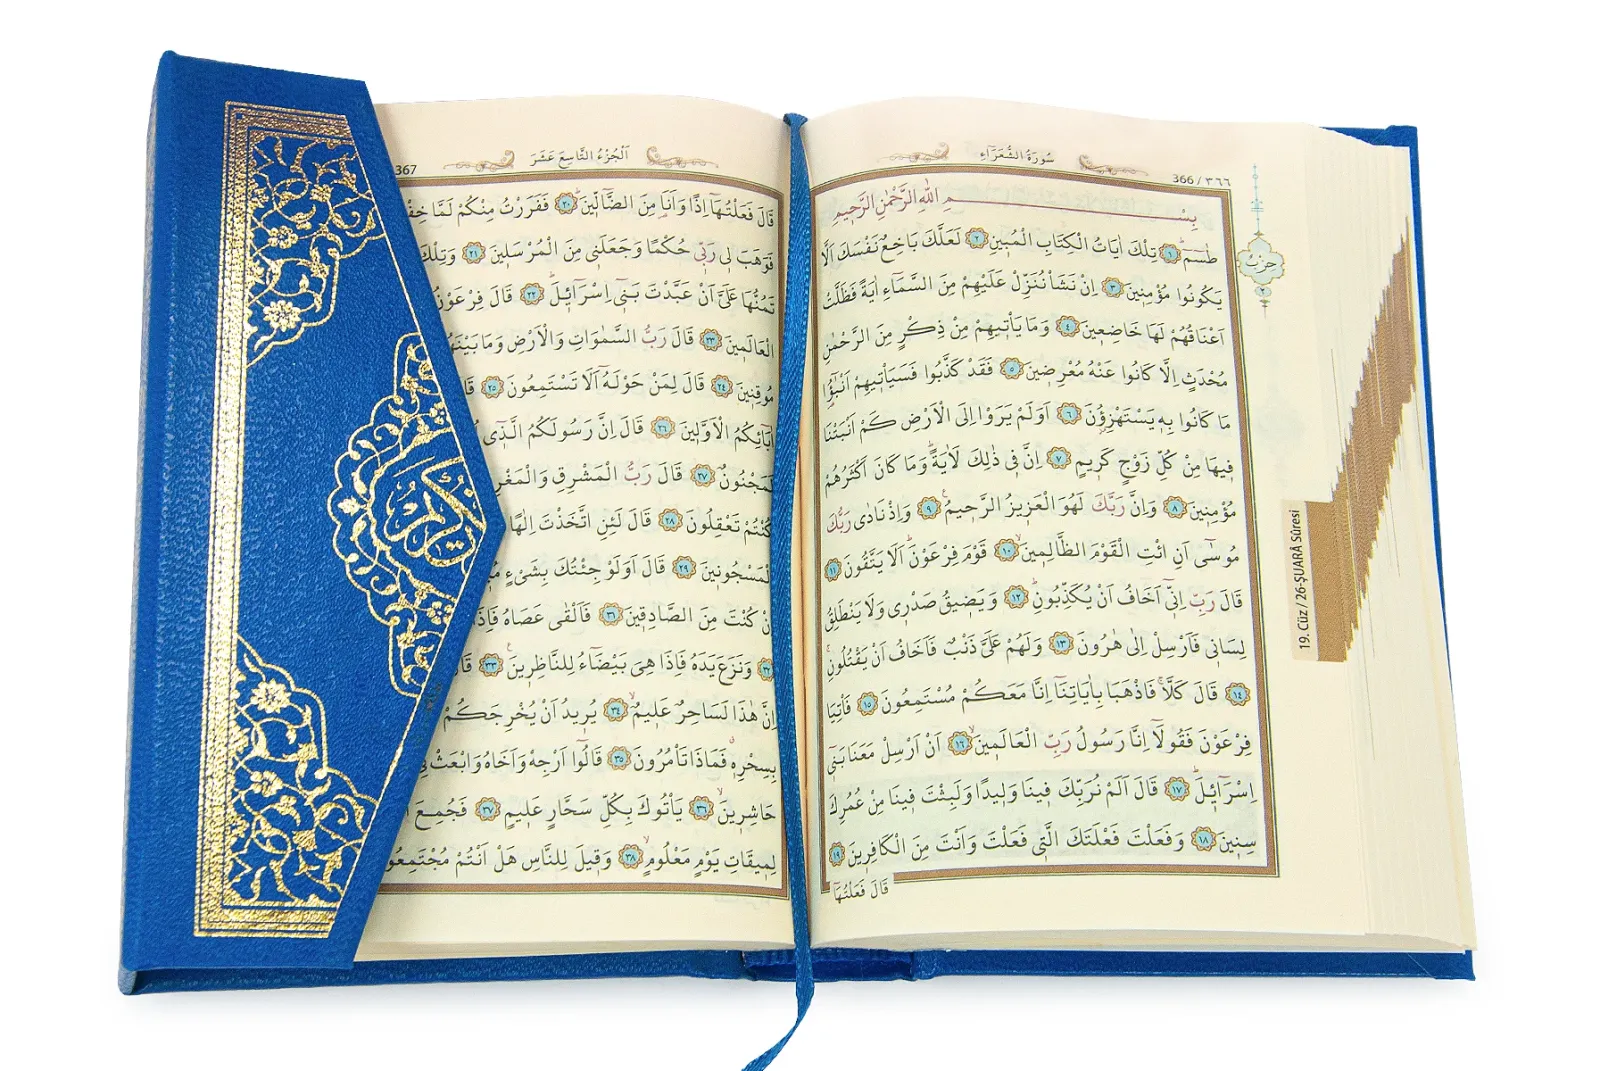 سُورَةُ الشُّعَرَاءِ
366 / ٣٦٦
بِسْمِ اللّٰهِ الرَّحْمٰنِ الرَّحٖيمِ
طٰسٓمٓ ١ تِلْكَ اٰيَاتُ الْكِتَابِ الْمُبٖينِ ٢ لَعَلَّكَ بَاخِعٌ نَفْسَكَ اَلَّا
يَكُونُوا مُؤْمِنٖينَ ٣ اِنْ نَشَأْ نُنَزِّلْ عَلَيْهِمْ مِنَ السَّمَٓاءِ اٰيَةً فَظَلَّتْ
اَعْنَاقُهُمْ لَهَا خَاضِعٖينَ ٤ وَمَا يَأْتٖيهِمْ مِنْ ذِكْرٍ مِنَ الرَّحْمٰنِ
مُحْدَثٍ اِلَّا كَانُوا عَنْهُ مُعْرِضٖينَ ٥ فَقَدْ كَذَّبُوا فَسَيَأْتٖيهِمْ اَنْبٰٓؤُا
مَا كَانُوا بِهٖ يَسْتَهْزِؤُنَ ٦ اَوَلَمْ يَرَوْا اِلَى الْاَرْضِ كَمْ اَنْبَتْنَا
فٖيهَا مِنْ كُلِّ زَوْجٍ كَرٖيمٍ ٧ اِنَّ فٖى ذٰلِكَ لَاٰيَةً وَمَا كَانَ اَكْثَرُهُمْ
مُؤْمِنٖينَ ٨ وَاِنَّ رَبَّكَ لَهُوَ الْعَزٖيزُ الرَّحٖيمُ ٩ وَاِذْ نَادٰى رَبُّكَ
مُوسٰٓى اَنِ ائْتِ الْقَوْمَ الظَّالِمٖينَ ١٠ قَوْمَ فِرْعَوْنَ اَلَا يَتَّقُونَ ١١
قَالَ رَبِّ اِنّٖٓى اَخَافُ اَنْ يُكَذِّبُونِ ١٢ وَيَضٖيقُ صَدْرٖى وَلَا يَنْطَلِقُ
لِسَانٖى فَاَرْسِلْ اِلٰى هٰرُونَ ١٣ وَلَهُمْ عَلَىَّ ذَنْبٌ فَاَخَافُ اَنْ يَقْتُلُونِ
١٤ قَالَ كَلَّا فَاذْهَبَا بِاٰيَاتِنَٓا اِنَّا مَعَكُمْ مُسْتَمِعُونَ ١٥ فَأْتِيَا
فِرْعَوْنَ فَقُولَٓا اِنَّا رَسُولُ رَبِّ الْعَالَمٖينَ ١٦ اَنْ اَرْسِلْ مَعَنَا بَنٖٓى
اِسْرَٓائٖلَ ١٧ قَالَ اَلَمْ نُرَبِّكَ فٖينَا وَلٖيدًا وَلَبِثْتَ فٖينَا مِنْ عُمُرِكَ
سِنٖينَ ١٨ وَفَعَلْتَ فَعْلَتَكَ الَّتٖى فَعَلْتَ وَاَنْتَ مِنَ الْكَافِرٖينَ ١٩
قَالَ فَعَلْتُهَٓا
حِزْبُ
٢
19. Cüz / 26-ŞUARÂ Sûresi
اَلْجُزْءُ التَّاسِعَ عَشَرَ
367
قَالَ فَعَلْتُهَٓا اِذًا وَاَنَا مِنَ الضَّٓالّٖينَ ٢٠ فَفَرَرْتُ مِنْكُمْ لَمَّا
فَوَهَبَ لٖى رَبّٖى حُكْمًا وَجَعَلَنٖى مِنَ الْمُرْسَلٖينَ ٢١ وَتِلْكَ
تَمُنُّهَا عَلَىَّ اَنْ عَبَّدْتَ بَنٖٓى اِسْرَٓائٖلَ ٢٢ قَالَ فِرْعَوْنُ
الْعَالَمٖينَ ٢٣ قَالَ رَبُّ السَّمٰوَاتِ وَالْاَرْضِ وَمَا بَيْنَهُمَا
مُوقِنٖينَ ٢٤ قَالَ لِمَنْ حَوْلَهُٓ اَلَا تَسْتَمِعُونَ ٢٥
اٰبَٓائِكُمُ الْاَوَّلٖينَ ٢٦ قَالَ اِنَّ رَسُولَكُمُ الَّذٖٓى
لَمَجْنُونٌ ٢٧ قَالَ رَبُّ الْمَشْرِقِ وَالْمَغْرِبِ
كُنْتُمْ تَعْقِلُونَ ٢٨ قَالَ لَئِنِ اتَّخَذْتَ اِلٰهًا
الْمَسْجُونٖينَ ٢٩ قَالَ اَوَلَوْ جِئْتُكَ بِشَىْءٍ
اِنْ كُنْتَ مِنَ الصَّادِقٖينَ ٣١ فَاَلْقٰى عَصَاهُ فَاِذَا
٣٢ وَنَزَعَ يَدَهُ فَاِذَا هِىَ بَيْضَٓاءُ لِلنَّاظِرٖينَ ٣٣ قَالَ
اِنَّ هٰذَا لَسَاحِرٌ عَلٖيمٌ ٣٤ يُرٖيدُ اَنْ يُخْرِجَكُمْ
بِسِحْرِهٖ فَمَاذَا تَأْمُرُونَ ٣٥ قَالُٓوا اَرْجِهْ وَاَخَاهُ وَابْعَثْ
حَاشِرٖينَ ٣٦ يَأْتُوكَ بِكُلِّ سَحَّارٍ عَلٖيمٍ ٣٧ فَجُمِعَ
لِمٖيقَاتِ يَوْمٍ مَعْلُومٍ ٣٨ وَقٖيلَ لِلنَّاسِ هَلْ اَنْتُمْ مُجْتَمِعُونَ